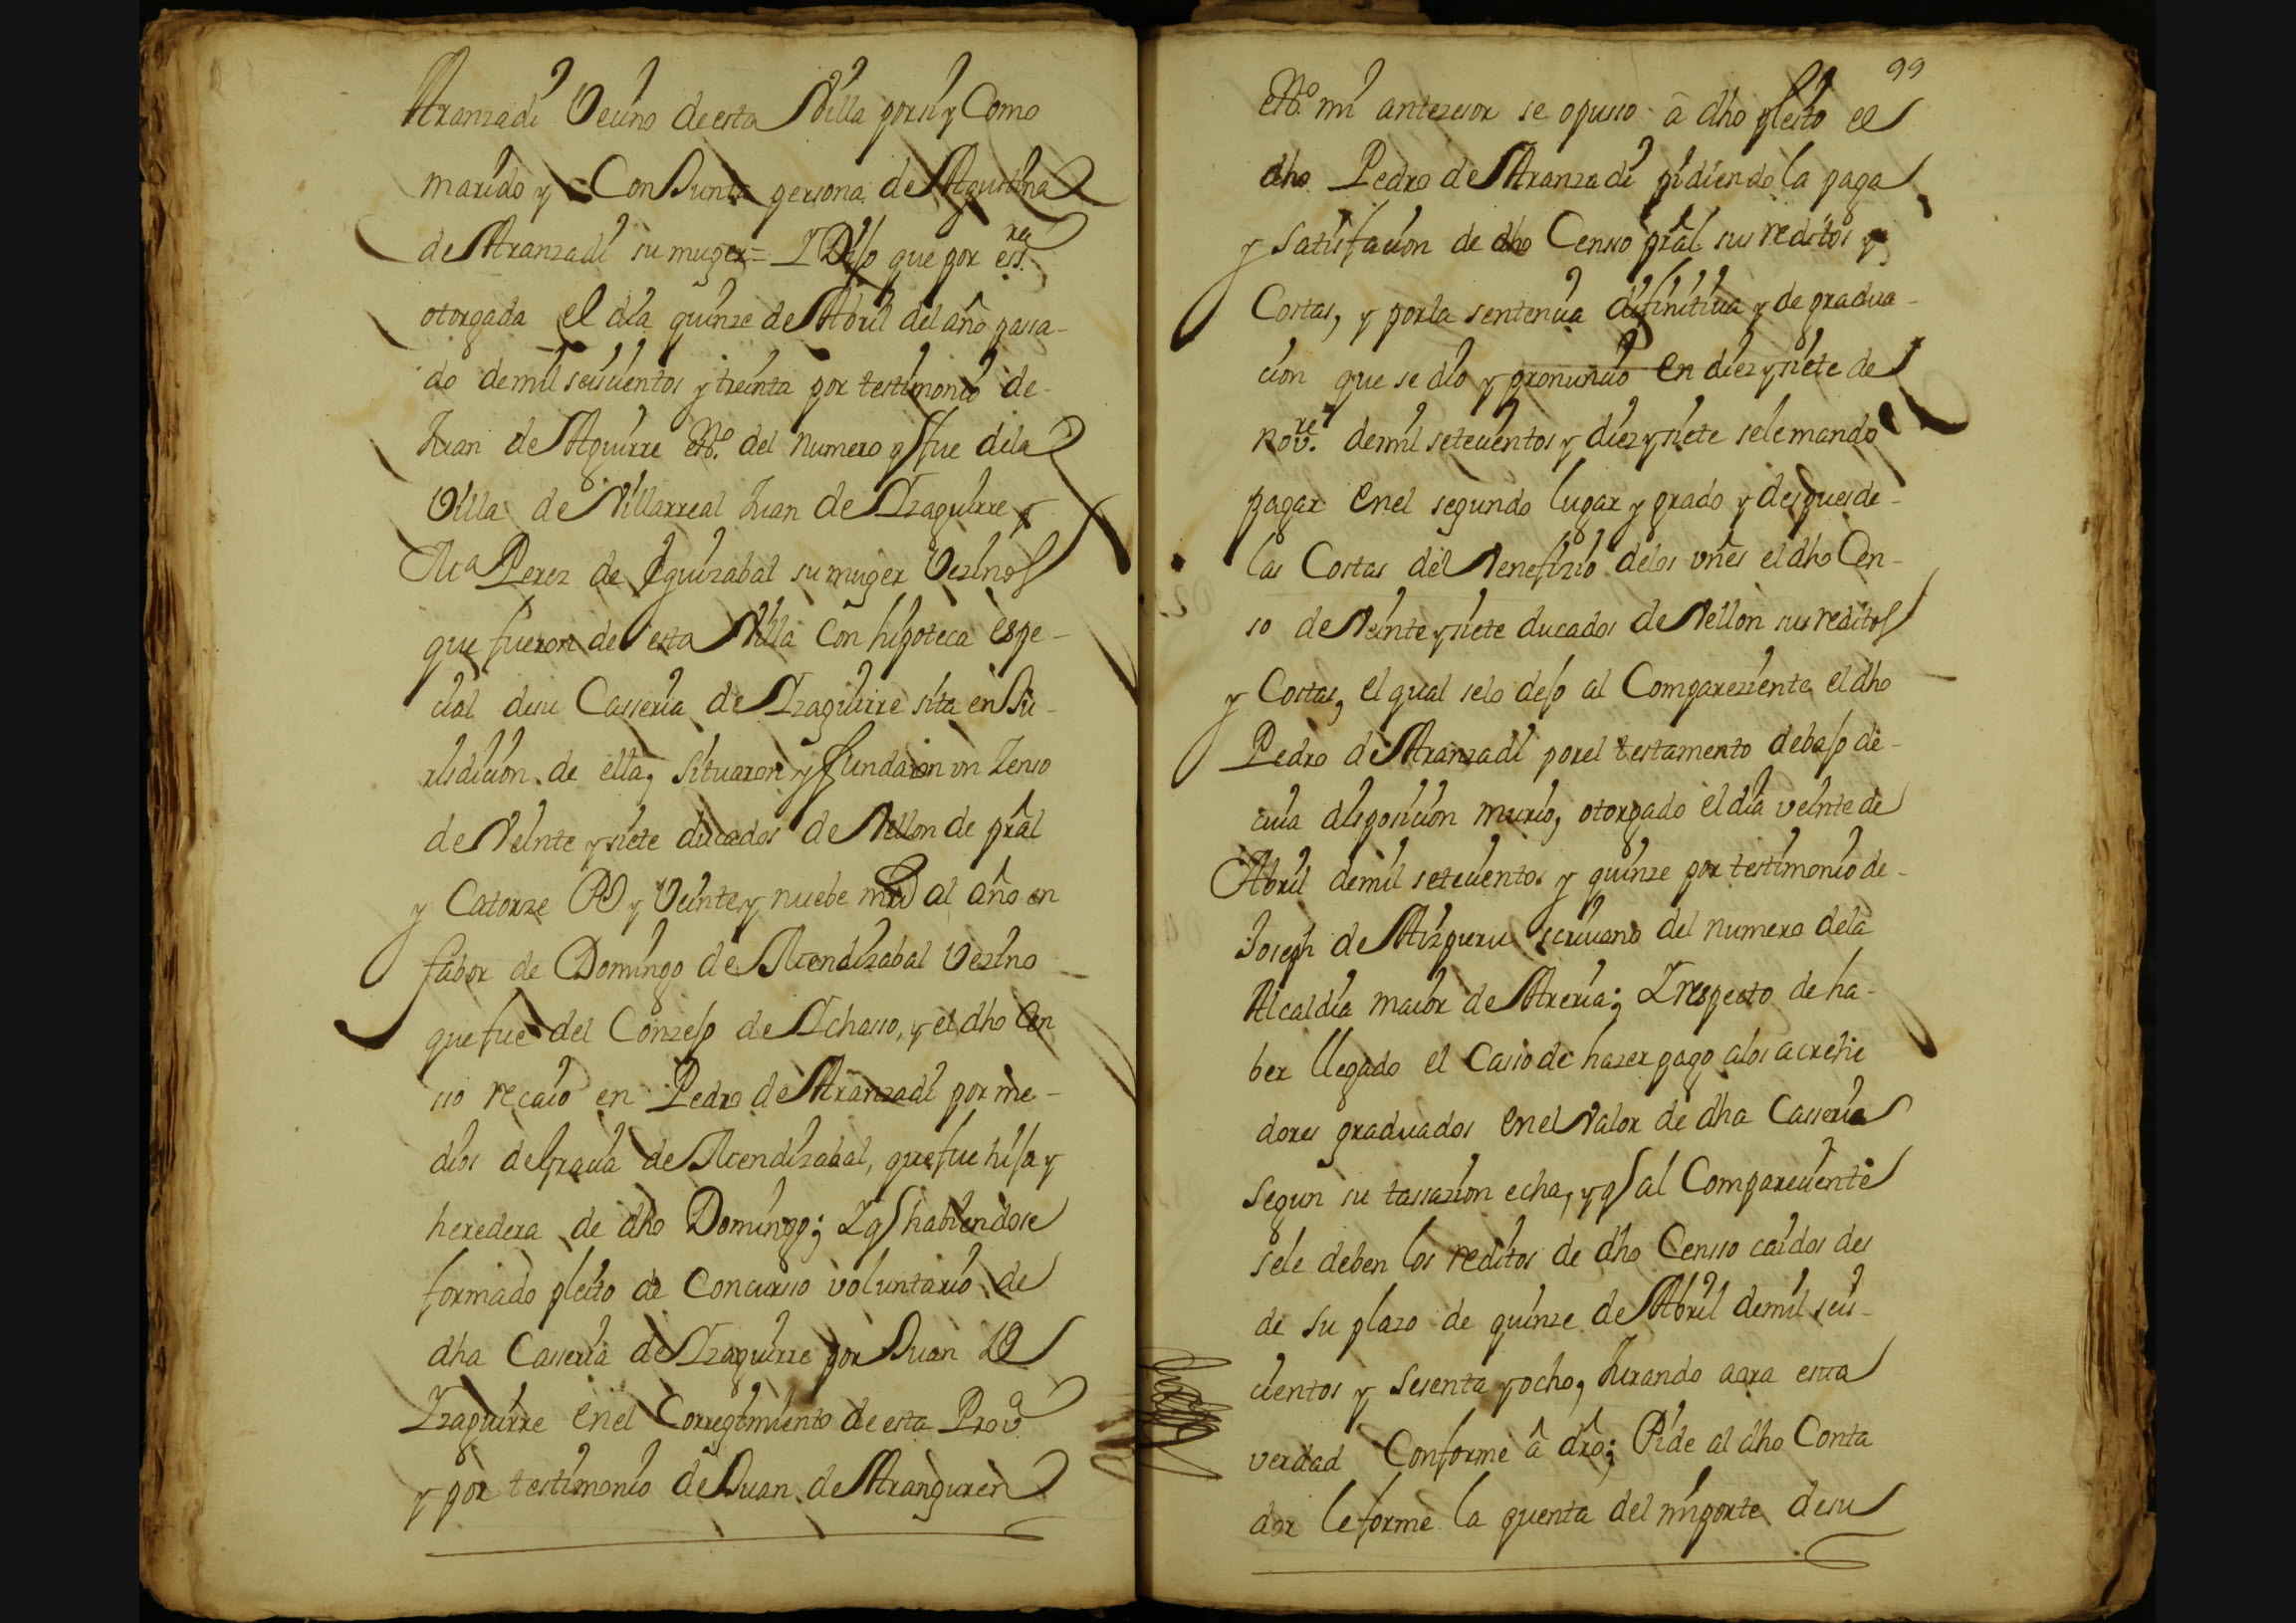 Aranzadi Vecino de esta Villa por si y Como
marido y Conjunta persona de Agustina
de Aranzadi su muger= I Dijo que por essra
otorgada el dia quinze de Abril del año passa-
do de mil seiscientos y treinta por testimonio de-
Juan de Aguirre essno del numero q fue de la
Villa de Villarreal Juan de Izaguirre y
Ma Perez de Eguizabal su muger Vezinos
que fueron de esta Villa Con hipoteca espe-
cial de su Casseria de Izaguirre sita en Ju-
risdicion de ella, situaron y fundaron vn Zenso
de Veinte y siete ducados de Vellon de pral
y Catorze Rs y Veinte y nuebe mrs al año en
fabor de Domingo de Arendizabal Vezino
que fue del Conzejo de Ichasso, y el dho Cen
sso recaio en Pedro de Aranzadi por me-
dios de Gracia de Arendizabal, que fue hija y
heredera de dho Domingo; I q habiendose
formado pleito de Concurso voluntario de
dha Casseria de Izaguirre por Juan de
Izaguirre en el Corregimiento de esta Prova
y por testimonio de Juan de Aranguren
99
essno mi antezesor se opusso â dho pleito el
dho Pedro de Aranzadi pidiendo la paga
y satisfacion de dho Censso pral sus reditos y
Costas, y por la sentencia difinitiua y de gradua-
cion que se dio y pronuncio en diez y siete de
novre de mil setecientos y diez y siete se le mando
pagar en el segundo lugar y grado y despues de-
las Costas del Venefizio delos vnes el dho Cen-
so de Veinte y siete ducados de Vellon sus reditos
y Costas, el qual se lo dejo al Compareziente el dho
Pedro de Aranzadi por el testamento debajo de-
cuia disposicion murio, otorgado el dia veinte de
Abril de mil setecientos y quinze por testimonio de-
Joseph de Aizpuru scriuano del numero de la
Alcaldia maior de Areria; I respecto de ha-
ber llegado el Casso de hazer pago alos acrehe
dores graduados en el Valor de dha Casseria
segun su tassazion echa, y q al Compareciente
se le deben los reditos de dho Censso caidos des
de su plazo de quinze de Abril de mil seis-
cientos y sesenta y ocho, Jurando aora esta
verdad Conforme â dro; Pide al dho Conta
dor le forme la quenta del inporte de su